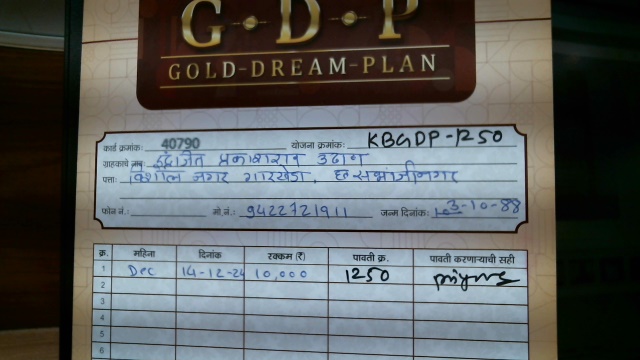 G·D·P
GOLD-DREAM-PLAN
कार्ड क्रमांक: 40790 योजना क्रमांक: KBGDP-1250
ग्राहकाचे नाव: इंद्रजित प्रकाशराव उढाण
पत्ता: विशाल नगर गारखेडा, छ. संभाजीनगर
फोन नं.: मो.नं.: 9422721911 जन्म दिनांक: 3-10-88
क्र. महिना दिनांक रक्कम (₹) पावती क्र. पावती करणाऱ्याची सही
1 Dec 14-12-24 10,000 1250
2
3
4
5
6